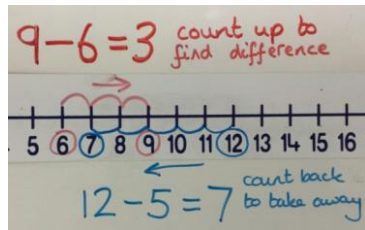 9-6=3 count up to
find difference
5 6 7 8 9 10 11 12 13 14 15 16
12-5=7 count back
to take away